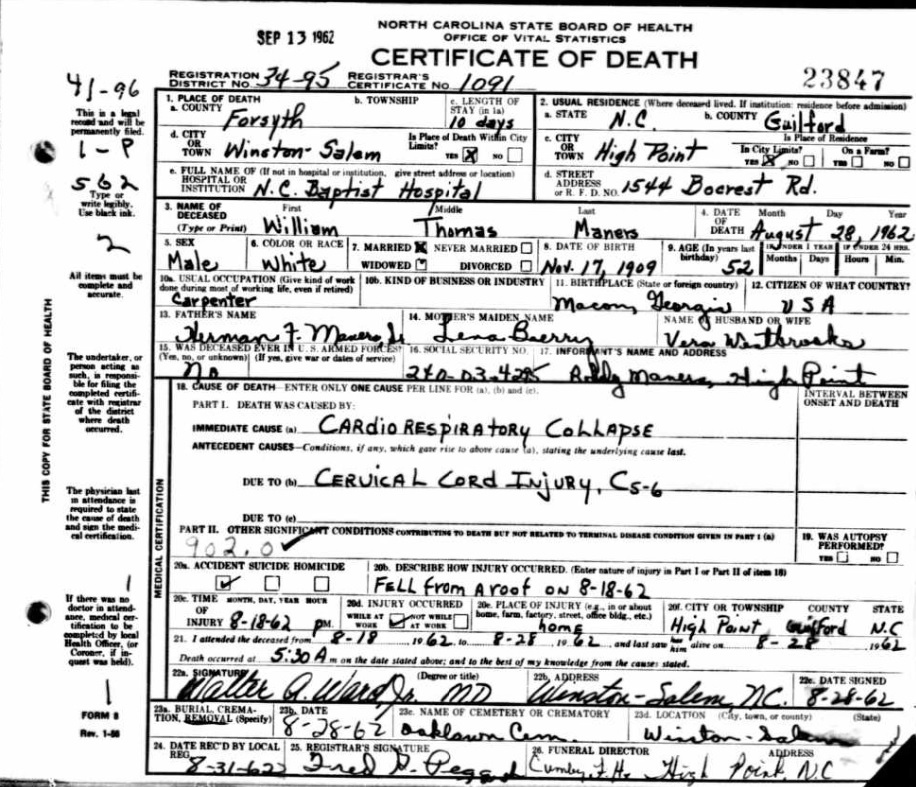 NORTH CAROLINA STATE BOARD OF HEALTH
OFFICE OF VITAL STATISTICS
SEP 13 1962
CERTIFICATE OF DEATH
41-96
REGISTRATION DISTRICT NO. 34-95 REGISTRAR'S CERTIFICATE NO. 1091
23847
This is a legal record and will be permanently filed.
1-P
562
Type or write legibly. Use black ink.
2
All items must be complete and accurate.
The undertaker, or person acting as such, is responsible for filing the completed certificate with registrar of the district where death occurred.
The physician last in attendance is required to state the cause of death and sign the medical certification.
1
If there was no doctor in attendance, medical certification to be completed by local Health Officer, (or Coroner, if inquest was held).
1
FORM 8
Rev. 1-56
THIS COPY FOR STATE BOARD OF HEALTH
1. PLACE OF DEATH
a. COUNTY Forsyth
b. TOWNSHIP
c. LENGTH OF STAY (in 1a) 10 days
2. USUAL RESIDENCE (Where deceased lived. If institution: residence before admission)
a. STATE N.C.
b. COUNTY Guilford
d. CITY OR TOWN Winston-Salem
Is Place of Death Within City Limits? YES X NO
c. CITY OR TOWN High Point
Is Place of Residence
In City Limits? YES X NO
On a Farm? YES NO
e. FULL NAME OF (If not in hospital or institution, give street address or location) HOSPITAL OR INSTITUTION N.C. Baptist Hospital
d. STREET ADDRESS or R. F. D. NO. 1544 Bocrest Rd.
3. NAME OF DECEASED (Type or Print)
First William
Middle Thomas
Last Maners
4. DATE OF DEATH
Month Day Year
August 28, 1962
5. SEX Male
6. COLOR OR RACE White
7. MARRIED X NEVER MARRIED
WIDOWED DIVORCED
8. DATE OF BIRTH Nov. 17, 1909
9. AGE (In years last birthday) 52
IF UNDER 1 YEAR Months Days
IF UNDER 24 HRS. Hours Min.
10a. USUAL OCCUPATION (Give kind of work done during most of working life, even if retired) Carpenter
10b. KIND OF BUSINESS OR INDUSTRY
11. BIRTHPLACE (State or foreign country) Macon, Georgia
12. CITIZEN OF WHAT COUNTRY? USA
13. FATHER'S NAME Herman F. Maners Sr.
14. MOTHER'S MAIDEN NAME Lena
NAME OF HUSBAND OR WIFE Vera Westbrooks
15. WAS DECEASED EVER IN U. S. ARMED FORCES? (Yes, no, or unknown) (If yes, give war or dates of service) No
16. SOCIAL SECURITY NO. 240-03-
17. INFORMANT'S NAME AND ADDRESS Maners, High Point
MEDICAL CERTIFICATION
18. CAUSE OF DEATH—ENTER ONLY ONE CAUSE PER LINE FOR (a), (b) and (c).
INTERVAL BETWEEN ONSET AND DEATH
PART I. DEATH WAS CAUSED BY:
IMMEDIATE CAUSE (a) CARdioRESPIRATORY COLLAPSE
ANTECEDENT CAUSES—Conditions, if any, which gave rise to above cause (a), stating the underlying cause last.
DUE TO (b) CERVICAL CORD INJURY, C5-6
DUE TO (c)
PART II. OTHER SIGNIFICANT CONDITIONS CONTRIBUTING TO DEATH BUT NOT RELATED TO TERMINAL DISEASE CONDITION GIVEN IN PART I (a)
902.0
19. WAS AUTOPSY PERFORMED? YES NO
20a. ACCIDENT SUICIDE HOMICIDE
20b. DESCRIBE HOW INJURY OCCURRED. (Enter nature of injury in Part I or Part II of item 18)
FELL from A roof on 8-18-62
20c. TIME OF INJURY MONTH, DAY, YEAR HOUR 8-18-62 PM.
20d. INJURY OCCURRED
WHILE AT WORK NOT WHILE AT WORK
20e. PLACE OF INJURY (e.g., in or about home, farm, factory, street, office bldg., etc.) home
20f. CITY OR TOWNSHIP COUNTY STATE
High Point Guilford N.C
21. I attended the deceased from 8-18 1962 to 8-28 1962, and last saw him alive on 8-28 1962
Death occurred at 5:30 A m on the date stated above; and to the best of my knowledge from the causes stated.
22a. SIGNATURE (Degree or title) Walter A. Ward Jr. MD
22b. ADDRESS Winston-Salem, NC.
22c. DATE SIGNED 8-28-62
23a. BURIAL, CREMATION, REMOVAL (Specify)
23b. DATE 8-28-62
23c. NAME OF CEMETERY OR CREMATORY Oaklawn Cem.
23d. LOCATION (City, town, or county) (State) Winston-Salem
24. DATE REC'D BY LOCAL REG. 8-31-62
25. REGISTRAR'S SIGNATURE Fred G. Pegg
26. FUNERAL DIRECTOR ADDRESS
Cumby F. H. High Point, N.C